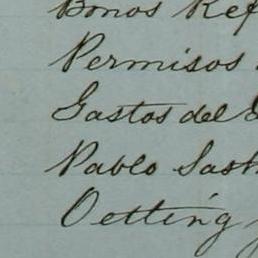 Bonos Ref
Permisos
Gastos del
Pablo Sast
Oetting